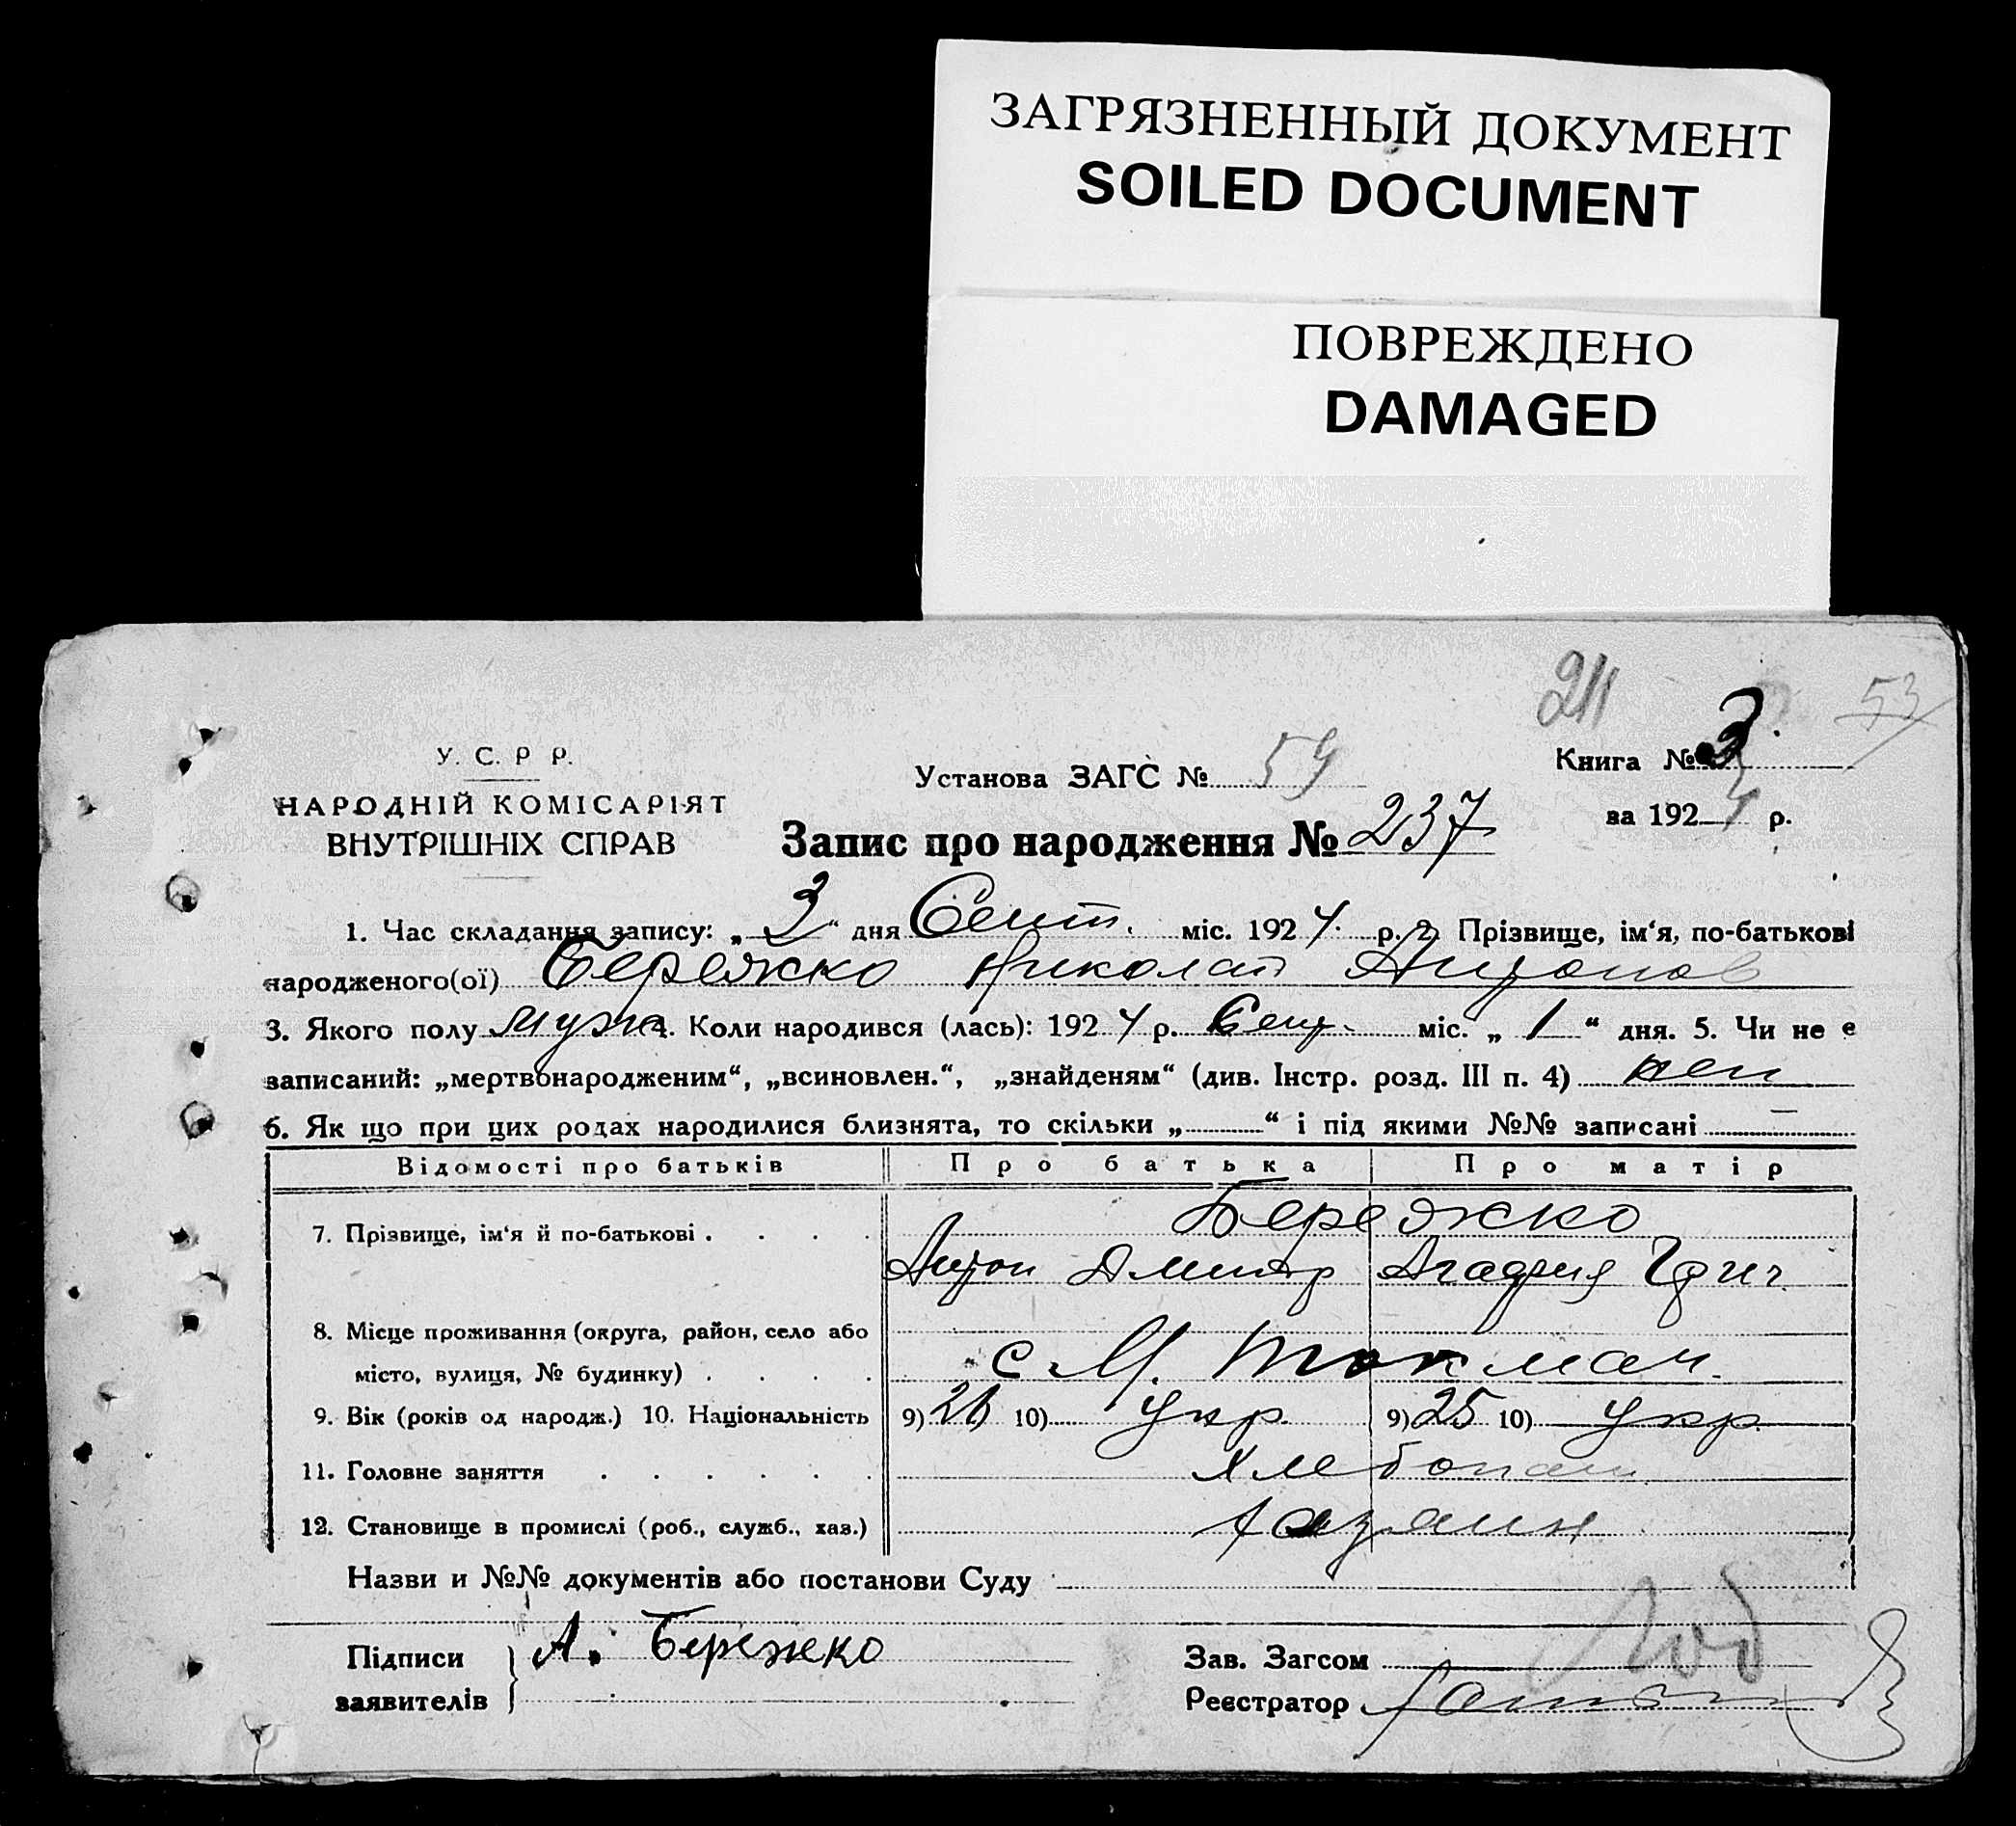 ЗАГРЯЗНЕННЫЙ ДОКУМЕНТ
SOILED DOCUMENT
ПОВРЕЖДЕНО
DAMAGED
53
У. С. Р Р.
НАРОДНІЙ КОМІСАРІЯТ
ВНУТРІШНІХ СПРАВ
Установа ЗАГС № 59
Книга № 3
за 1924 р.
Запис про народження № 237
1. Час складання запису: „3“ дня Сент. міс. 1924. р. 2. Прізвище, ім‘я, по-батькові
народженого(ої) Бережко Николай Антонов
3. Якого полу муж 4. Коли народився (лась): 1924 р. Сент. міс. „1“ дня. 5. Чи не є
записаний: „мертвонародженим“, „всиновлен.“, „знайденям“ (див. Інстр. розд. III п. 4) нет
6. Як що при цих родах народилися близнята, то скільки „ “ і під якими №№ записані —
Відомості про батьків Про батька Про матір
7. Прізвище, ім‘я й по-батькові . . . . Бережко
Антон Дмитр Агафия Григ.
8. Місце проживання (округа, район, село або
місто, вулиця, № будинку) . . . . с М. Токмач.
9. Вік (років од народж.) 10. Національність 9) 26 10) Укр. 9) 25 10) Укр.
11. Головне заняття . . . . . . Хлебопаш.
12. Становище в промислі (роб., служб., хаз.) хазяин
Назви и №№ документів або постанови Суду
Підписи А. Бережко
заявителів
Зав. Загсом
Реєстратор